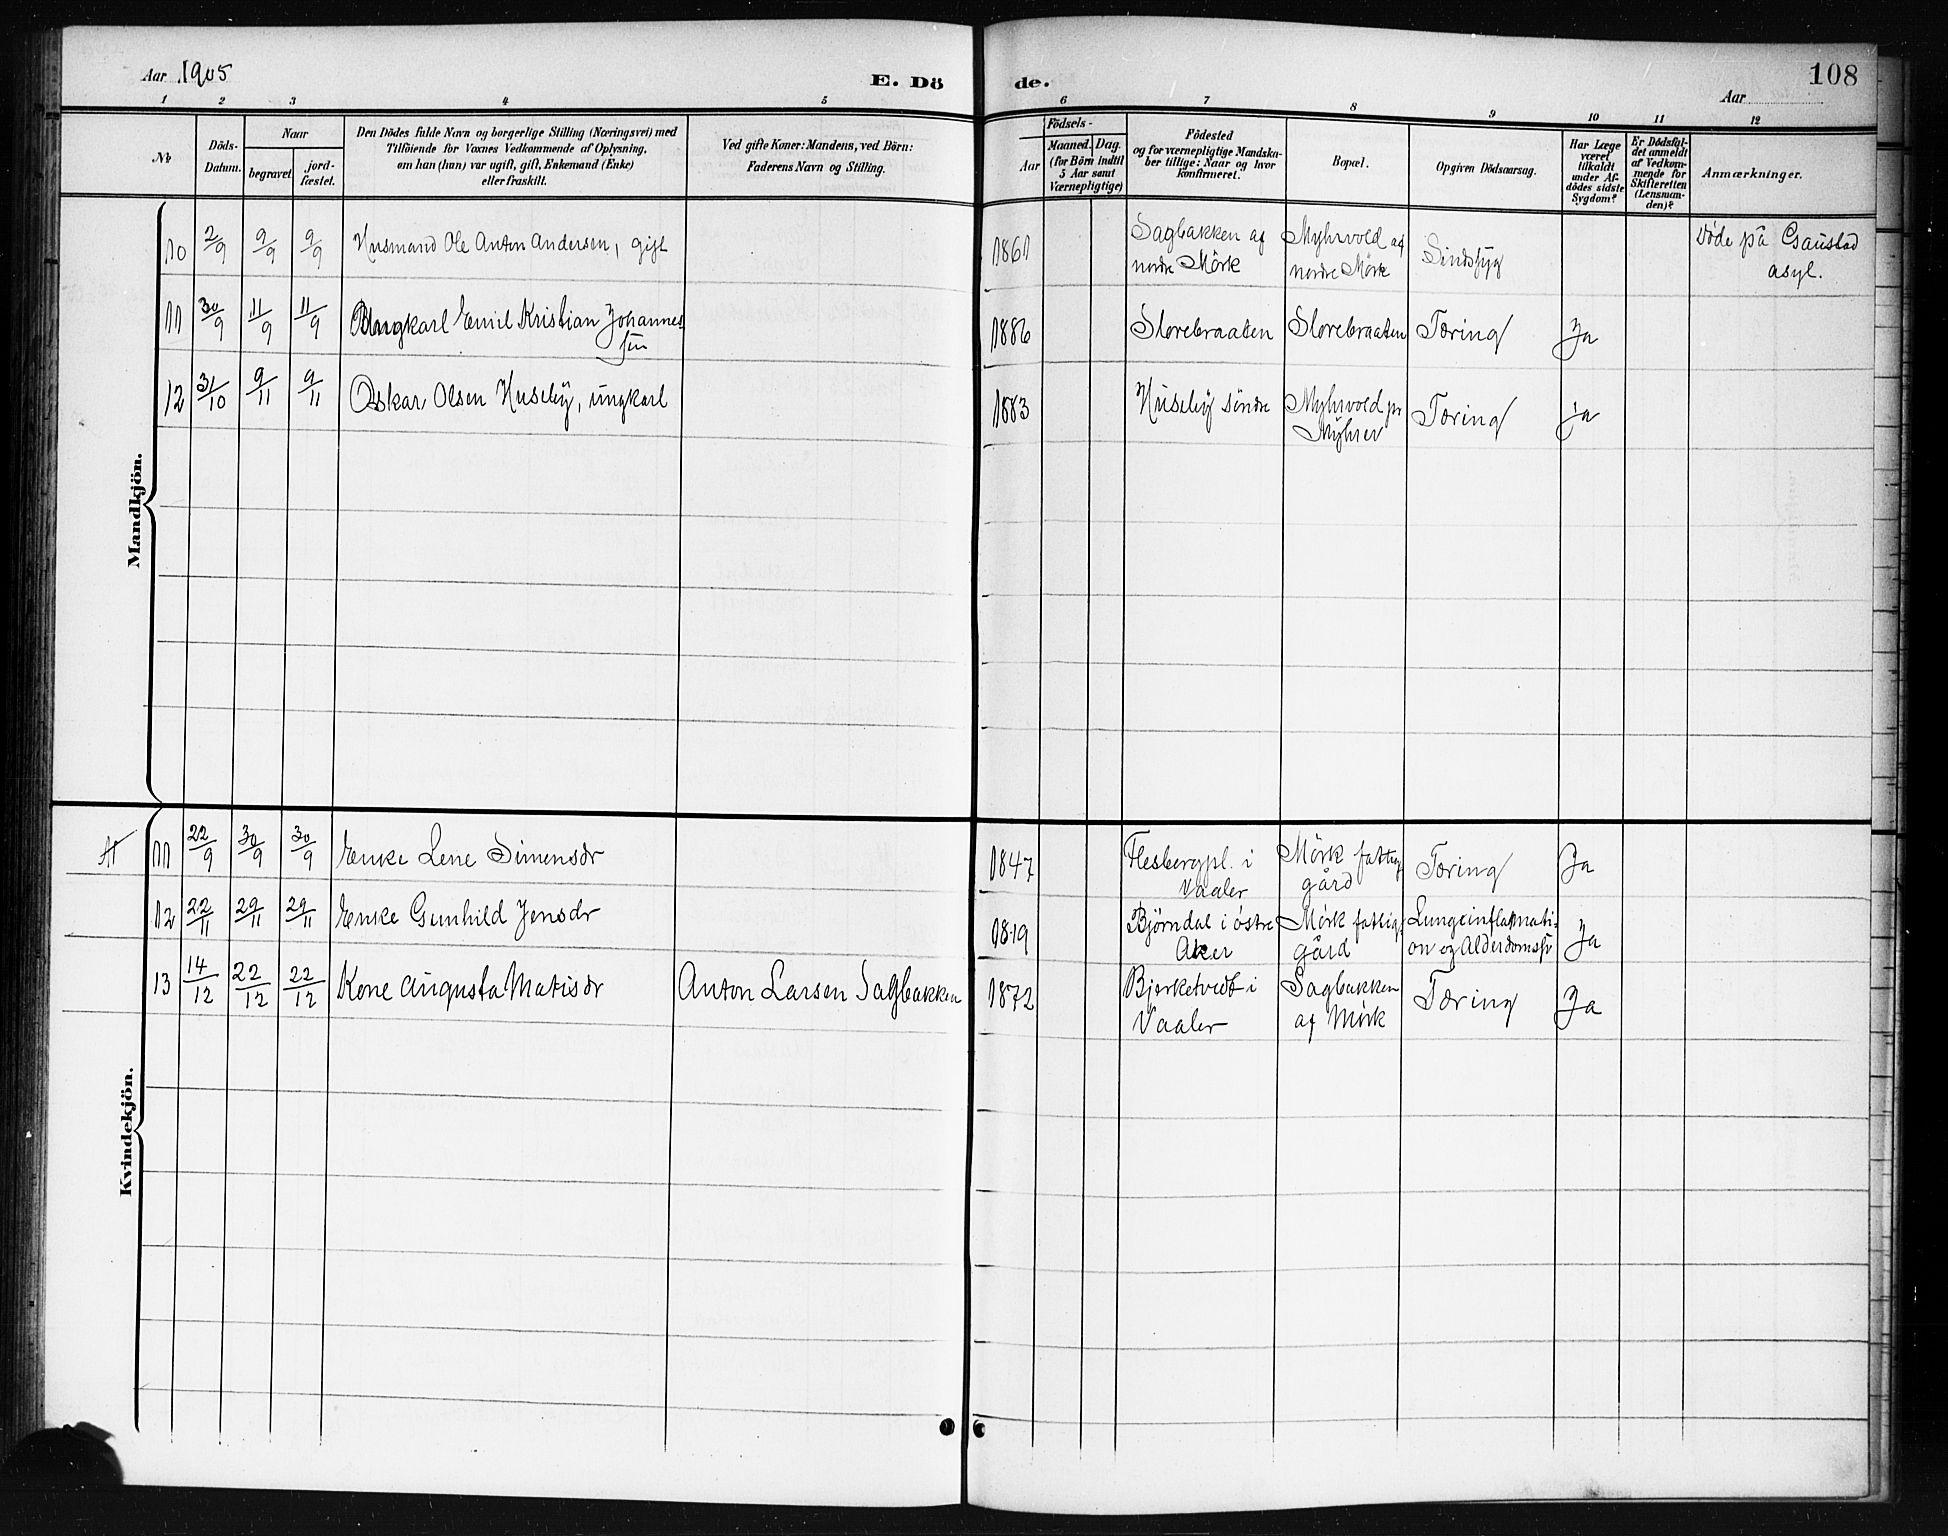 Aar 1905
E. Dö
de.
108
Aar
1 2 3 4 5
6 7 8 9 10 11 12
No
Döds-
Datum.
Naar
begravet
jord-
fæstet.
Den Dödes fulde Navn og borgerlige Stilling (Næringsvei) med
Tilföiende for Voxnes Vedkommende af Oplysning,
om han (hun) var ugift, gift, Enkemand (Enke)
eller fraskilt.
Ved gifte Koner: Mandens, ved Börn:
Faderens Navn og Stilling.
Födsels-
Aar
Maaned.
Dag.
(for Börn indtil
5 Aar samt
Værnepligtige)
Födested
og for værnepligtige Mandska-
ber tillige: Naar og hvor
konfirmeret.
Bopæl.
Opgiven Dödsaarsag.
Har Læge
været
tilkaldt
under Af-
dödes sidste
Sygdom?
Er Dödsfal-
det anmeldt
af Vedkom-
mende for
Skifteretten
(Lensman-
den)?
Anmærkninger.
Mandkjön.
10 2/9 9/9 9/9 Husmand Ole Anton Andersen, gift 1861 Sagbakken af Myhrvold af Sindssyg Døde på Gaustad
nordre Mörk nordre Mörk asyl.
11 30/9 11/9 11/9 Ungkarl Emil Kristian Johannes 1886 Storebraaten Storebraaten Tæring Ja
sen
12 31/10 9/11 9/11 Oskar Olsen Huseby, ungkarl 1883 Huseby söndre Myhrvold pr Tæring ja
Myhrer
Kvindekjön.
11 11 22/9 30/9 30/9 Enke Lene Simensdr 1847 Flesbergpl. i Mörk fattig Tæring Ja
Vaaler gård
12 22/11 29/11 29/11 Enke Gunhild Jensdr 1819 Bjørndal i østre Mörk fattig Lungeinflamati-
Aker gård on og Alderdomssv Ja
13 14/12 22/12 22/12 Kone Augusta Matisdr Anton Larsen Sagbakken 1872 Bjerketvedt i Sagbakken Tæring Ja
Vaaler af Mörk